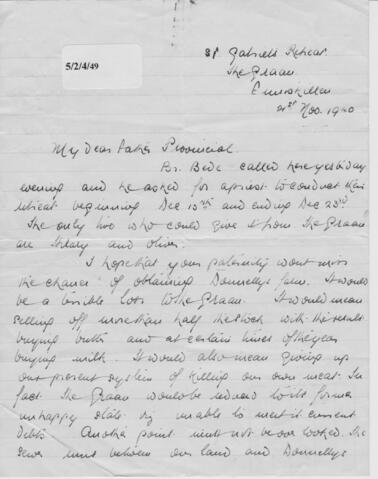 5/2/4/49
St. Gabriels Retreat
The Graan.
Enniskillen
21st Nov. 1940
My Dear Father Provincial.
Br. Bede called here yesterday
evening and he asked for a priest to conduct their
retreat beginning Dec 15th and ending Dec 23rd.
The only two who could give it from The Graan
are Hilary and Oliver.
I hope that your paternity wont miss
the chance of obtaining Donnellys farm. It would
be a terrible loss to the Graan. It would mean
selling off more than half the stock with the result
buying butter and at certain times of the year
buying milk. It would also mean giving up
our present system of killing our own meat. In
fact The Graan would be reduced to its former
unhappy state by unable to meet its current
debts. Another point must not be over looked. The
sewer runs between our land and Donnellys